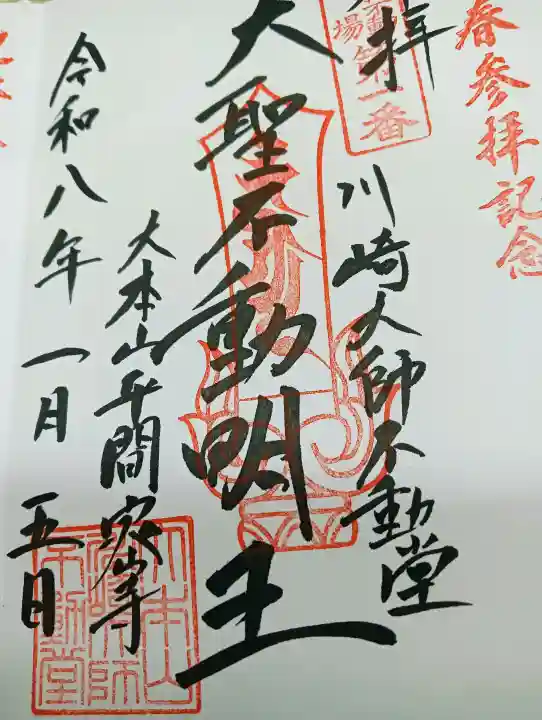 春参拝記念
拝
場第一番
川崎大師不動堂
大聖不動明王
大本山平間寺
令和八年一月五日